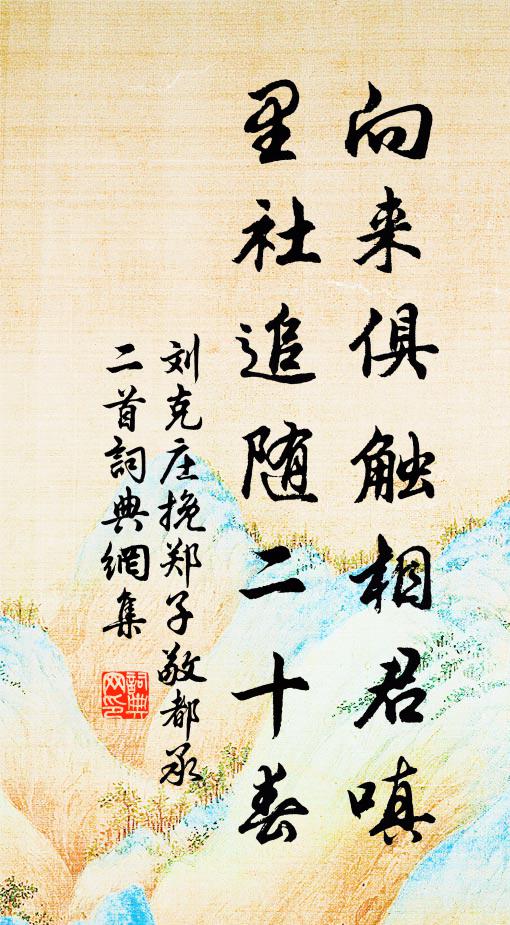 向来俱触相君嗔
里社追随二十春
刘克庄挽郑子敬都承
二首詞典網集
詞典
网印